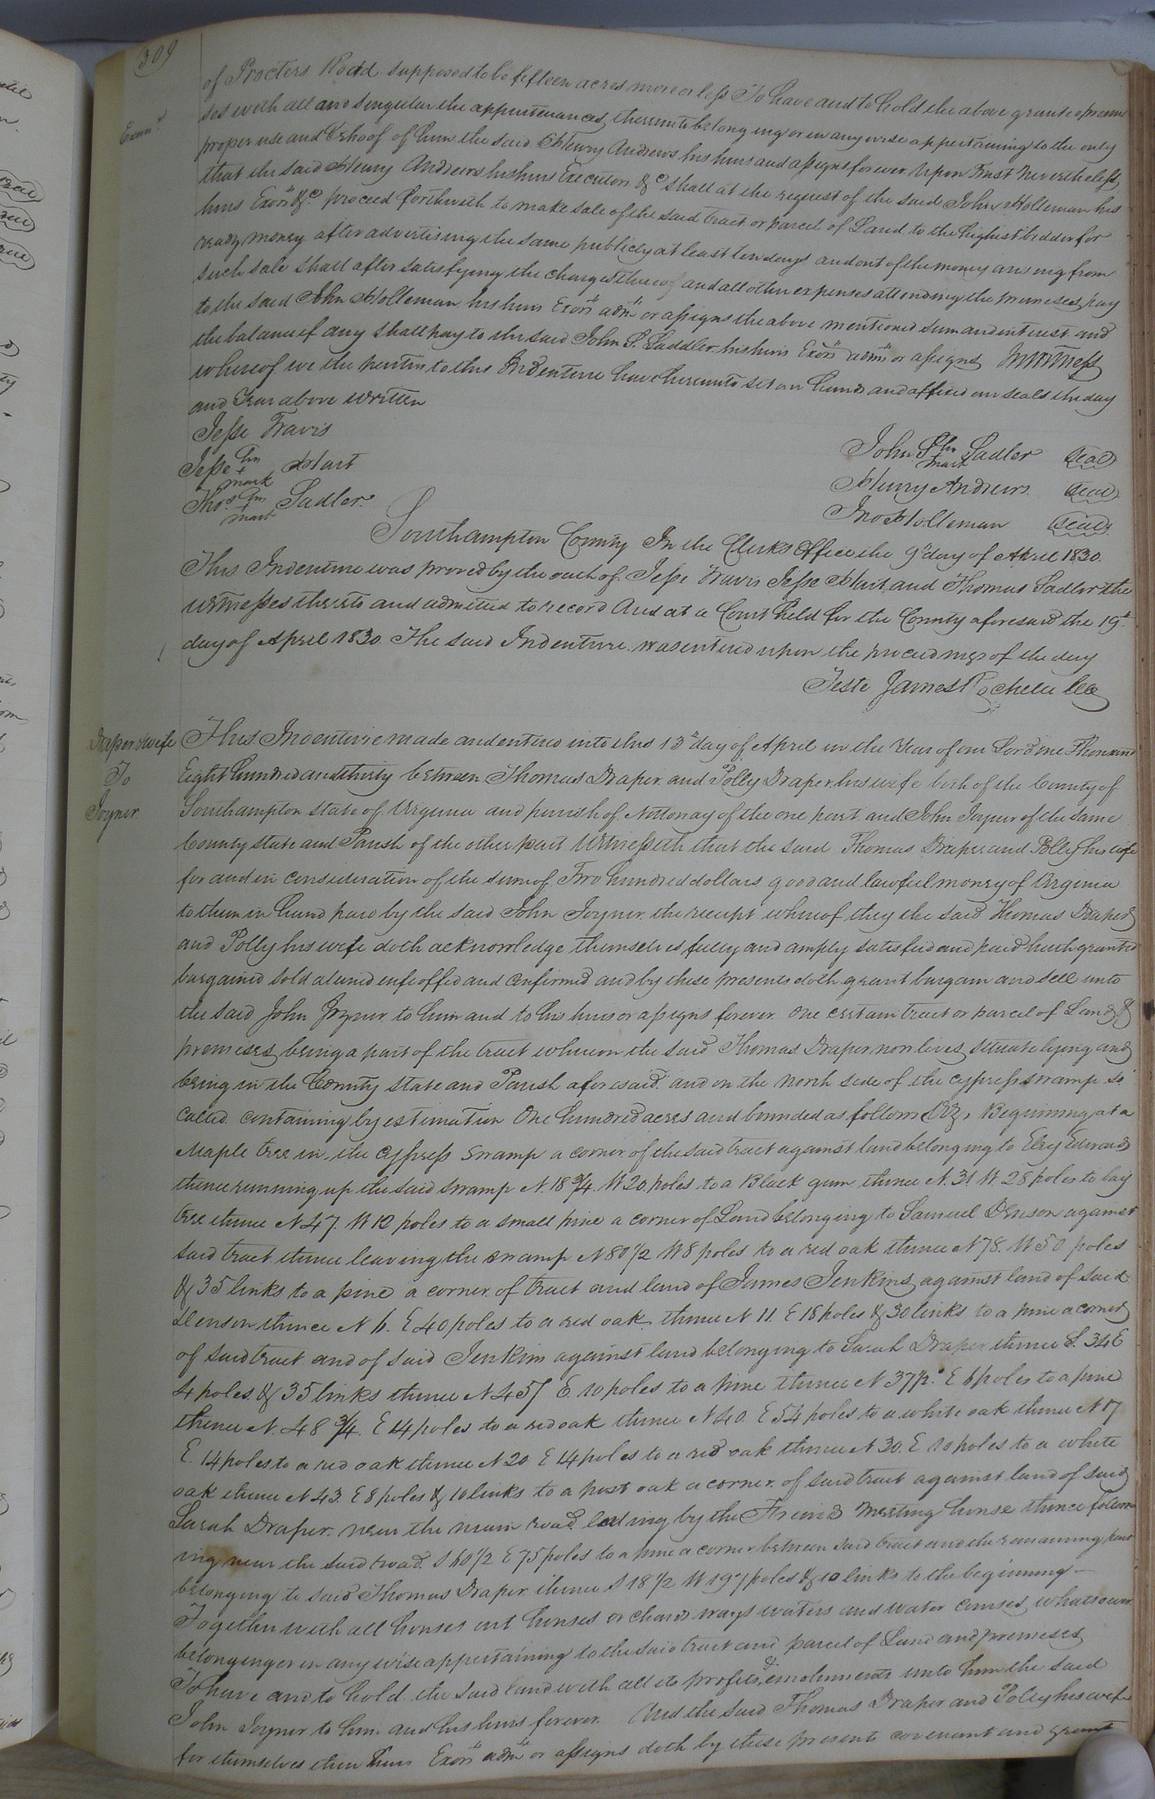 309
of Procters Road supposed to be fifteen acres more or less To have and to hold the above granted premi
Examd.
ses with all and singular the appurtenances thereunto belonging or in any wise appertaining to the only
proper use and behoof of him the said Henry Andrews his heirs and assigns forever Upon Trust Nevertheless,
that the said Henry Andrews his heirs Executors &c shall at the request of the said John Holleman his
heirs Exors &c. proceed forthwith to make sale of the said tract or parcel of Land to the highest bidder for
ready money after advertising the same publicly at least ten days and out of the money arising from
such sale shall after satisfying the charges thereof and all other expenses attending the premises, pay
to the said John Holleman his heirs Exors admrs or assigns the above mentioned sum and interest and
the balance if any shall pay to the said John S. Saddler his heirs Exors admrs or assigns In Witness
whereof we the parties to this Indenture have hereunto set our hands and affixed our seals the day
and Year above written
Jesse Travis
John his mark Sadler Seal
Jesse his + mark Hart
Henry Andrews Seal
Thos his mark Sadler
Jno Holleman Seal
Southampton County In the Clerks Office the 9th day of April 1830.
This Indenture was proved by the oath of Jesse Travis Jesse Hart and Thomas Sadler the
witnesses thereto and admitted to record And at a Court held for the County aforesaid the 19th
day of April 1830. The said Indenture was entered upon the proceedings of the day
Teste James Rochelle CC
Draper & wife To Joyner
This Indenture made and entered into this 13th day of April in the Year of our Lord one Thousand
Eight hundred and thirty between Thomas Draper and Polly Draper his wife both of the County of
Southampton State of Virginia and parish of Nottoway of the one part and John Joyner of the same
County State and Parish of the other part Witnesseth that the said Thomas Draper and Polly his wife
for and in consideration of the sum of Two hundred dollars good and lawful money of Virginia
to them in hand paid by the said John Joyner the receipt whereof they the said Thomas Draper
and Polly his wife doth acknowledge themselves fully and amply satisfied and paid hath granted
bargained sold aliened enfeoffed and confirmed and by these presents doth grant bargain and sell unto
the said John Joyner to him and to his heirs or assigns forever One certain tract or parcel of Land &
premises being a part of the tract whereon the said Thomas Draper now lives situate lying and
being in the County State and Parish aforesaid and on the North side of the cypress swamp so
called containing by estimation One hundred acres and bounded as follows Viz, Beginning at a
Maple tree in the Cypress Swamp a corner of the said tract against land belonging to Eley Edwards
thence running up the said swamp N. 18 3/4 W 20 poles to a Black gum thence N. 31 W 28 poles to bay
tree thence N 47. W 12 poles to a small pine a corner of Land belonging to Samuel Denson against
said tract thence leaving the swamp N 80 1/2 W 8 poles to a red oak thence N 78. W 50 poles
& 35 links to a pine a corner of tract and land of James Jenkins against land of said
Denson thence N 6. E 40 poles to a red oak thence N 11. E 18 poles & 30 links to a pine a corner
of said tract and of said Jenkins against land belonging to Sarah Draper thence S. 34 E
4 poles & 35 links thence N 45 E 10 poles to a pine thence N 37 E 6 poles to a pine
thence N. 48 3/4. E 14 poles to a red oak thence N 40. E 54 poles to a white oak thence N 17
E. 14 poles to a red oak thence N 20 E 14 poles to a red oak thence N 30. E 10 poles to a white
oak thence N 43. E 8 poles & 10 links to a post oak a corner of said tract against land of said
Sarah Draper near the main road leading by the Friends Meeting house thence follow
ing near the said road S 60 1/2 E 75 poles to a pine a corner between said tract and the remaining part
belonging to said Thomas Draper thence S 18 1/2 W 197 poles & 10 links to the beginning
Together with all houses out houses orchards ways waters and water courses whatsoever
belonging or in any wise appertaining to the said tract and parcel of Land and premises
To have and to hold the said land with all its profits & emoluments unto him the said
John Joyner to him and his heirs forever. And the said Thomas Draper and Polly his wife
for themselves their heirs Exors admrs or assigns doth by these presents covenant and grant